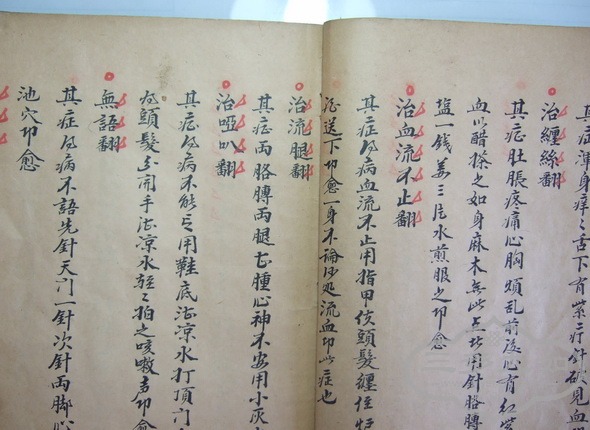 其症渾身痒々舌下有紫疔針破見血
治纏絲翻
其症肚脹疼痛心胸煩乱前後心有紅紫
血以醋搽之如身麻木無此点者用針胳膊
塩一钱姜三片水煎服之即愈
治血流不止翻
其症得病血流不止用指甲使頭髮纏住
送下即愈一身不論何處流血即此症也
治流腿翻
其症两胳膊两腿長腫心神不安用小灰
治啞叭翻
其症得病不能言用鞋底沾凉水打頂門
頭髮分開手沾凉水輕々拍之咳嗽多即愈
無語翻
其症得病不語先針天门一針次針两脚心
池穴即愈